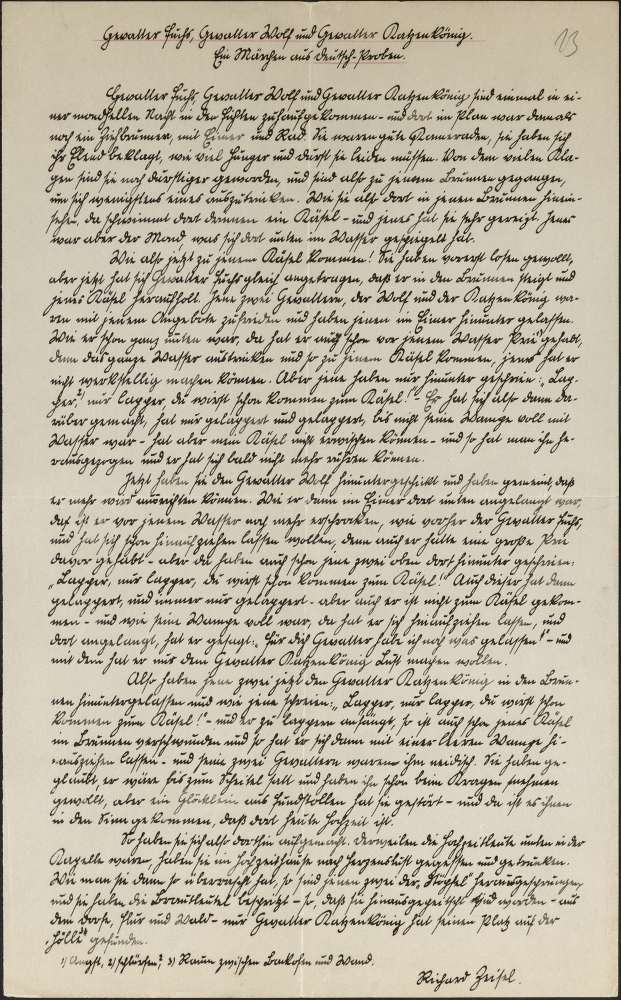 Gevatter Fuchs, Gevatter Wolf und Gevatter Katzenkönig.
Ein Märchen aus Deutsch-Proben.
13
Gevatter Fuchs, Gevatter Wolf und Gevatter Katzenkönig sind einmal in ei-
ner mondhellen Nacht in den Fichten zuhaufgekommen - und dort im Plan war damals
noch ein Ziehbrunnen, mit Eimer und Rad. Sie waren gute Kameraden, sie haben sich
ihr Elend beklagt, wie viel Hunger und Durst sie leiden müssen. Von dem vielen Kla-
gen sind sie noch durstiger geworden, und sind also zu jenem Brunnen gegangen,
um sich wenigstens eines auszutrinken. Wie sie also dort in jenen Brunnen hinein-
sehen, da schwimmt dort drinnen ein Käsel - und jenes hat sie sehr gereizt. Jenes
war aber der Mond, was sich dort unten im Wasser gespiegelt hat.
Wie also jetzt zu jenem Käsel kommen! Sie haben vorerst losen gewollt,
aber jetzt hat sich Gevatter Fuchs gleich angetragen, daß er in den Brunnen steigt und
jenes Käsel heraufholt. Jene zwei Gevattern, der Wolf und der Katzenkönig wa-
ren mit jenem Angebote zufrieden und haben jenen im Eimer hinunter gelassen.
Wie er schon ganz unten war, da hat er auch schon vor jenem Wasser gehabt,
denn das ganze Wasser austrinken und so zu jenem Käsel kommen, jenes hat er
nicht werkstellig machen können. Aber jene haben nur hinunter geschrien: „Lap-
per,²) nur lapper, du wirst schon kommen zum Käsel!" - Er hat sich also dann da-
rüber gemacht, hat nur gelappert und gelappert, bis nicht seine Wampe voll mit
Wasser war - hat aber mein Käsel nicht erwischen können - und so hat man ihn he-
raufgezogen und er hat sich bald nicht mehr rühren können.
Jetzt haben sie den Gevatter Wolf hinuntergeschickt und haben gemeint, daß
er mehr wird ausrichten können. Wie er dann im Eimer dort unten angelangt war,
da ist er vor jenem Wasser noch mehr erschrocken, wie vorher der Gevatter Fuchs,
und hat sich schon hinaufziehen lassen wollen, denn auch er hatte eine große
davor gehabt - aber da haben auch schon jene zwei oben dort hinunter geschrien:
„Lapper, nur lapper, du wirst schon kommen zum Käsel!" Auch dieser hat dann
gelappert, und immer nur gelappert - aber auch er ist nicht zum Käsel gekom-
men - und wie seine Wampe voll war, da hat er sich hinaufziehen lassen, und
dort angelangt, hat er gesagt: „Für dich Gevatter habe ich noch was gelassen!" - und
mit dem hat er nur dem Gevatter Katzenkönig Lust machen wollen.
Also haben jene zwei jetzt den Gevatter Katzenkönig in den Brun-
nen hinuntergelassen und wie jene schreien: „Lapper, nur lapper, du wirst schon
kommen zum Käsel!" - und er zu lappern anfängt, so ist auch schon jenes Käsel
im Brunnen verschwunden und so hat er sich dann mit einer leeren Wampe hi-
nausziehen lassen - und seine zwei Gevattern waren ihm neidisch. Sie haben ge-
glaubt, er wäre bis zum Scheitel satt und haben ihn schon beim Kragen nehmen
gewollt, aber ein Glöcklein aus Hundstollen hat sie gestört - und da ist es ihnen
in den Sinn gekommen, daß dort heute Hochzeit ist.
So haben sie sich also dorthin aufgemacht. Derweilen die Hochzeitleute unten in der
Kapelle waren, haben sie im Hochzeitshause nach Herzenslust gegessen und getrunken.
Wie man sie dann so überrascht hat, so sind jenen zwei der „Stöpsel" herausgesprungen,
und sie haben die Brautleute bespritzt - so, daß sie hinausgepeitscht sind worden - aus
dem Dorfe, Flur und Wald - nur Gevatter Katzenkönig hat seinen Platz auf der
„Hölle"³) gefunden.
1) Angst, 2) schlürfen, 3) Raum zwischen Backofen und Wand.
Richard Zeisel.